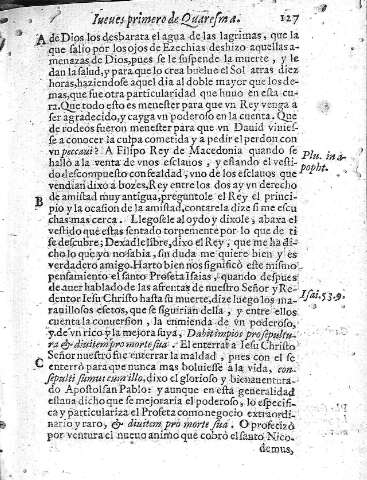 Iueues primero de Quaresma. 127
A de Dios los desbarata el agua de las lagrimas, que la
que salio por los ojos de Ezechias deshizo aquellas a-
menazas de Dios, pues se le suspende la muerte, y le
dan la salud, y para que lo crea buelue el Sol atras diez
horas, haziendose aquel dia al doble mayor que los de-
mas, que fue otra particularidad que huuo en esta cu-
ra. Que todo esto es menester para que vn Rey venga a
ser agradecido, y cayga vn poderoso en la cuenta. Que
de rodeos fueron menester para que vn Dauid vinies-
se a conocer la culpa cometida y a pedir el perdon con
vn peccaui? A Filipo Rey de Macedonia quando se
hallò a la venta de vnos esclauos, y estando el vesti-
do descompuesto con fealdad, vno de los esclauos que
vendian dixo a bozes, Rey entre los dos ay vn derecho
B de amistad muy antigua, preguntole el Rey el princi-
pio y la ocasion de la amistad, contarela dize si me escu
chas mas cerca. Llegosele al oydo y dixole, abaxa el
vestido que estas sentado torpemente por lo que de ti
se descubre; Dexadle libre, dixo el Rey, que me ha di-
cho lo que yo no sabia, sin duda me quiere bien y es
verdadero amigo. Harto bien nos significò este mismo
pensamiento el santo Profeta Isaias, quando despues
de auer hablado de las afrentas de nuestro Señor y Re-
dentor Iesu Christo hasta su muerte, dize luego los ma-
rauillosos efetos, que se siguirian della, y entre ellos
cuenta la conuersion, la enmienda de vn poderoso,
y de vn rico y la mejora suya, Dabit impios pro sepultu-
ra & diuitem pro morte sua. El enterrar a Iesu Christo
Señor nuestro fue enterrar la maldad, pues con el se
C enterrò para que nunca mas boluiesse à la vida, con-
sepulti sumus cum illo, dixo el glorioso y bienauentura-
do Apostol san Pablo: y aunque en esta generalidad
estaua dicho que se mejoraria el poderoso, lo especifi-
ca y particulariza el Profeta como negocio extraordi-
nario y raro, & diuitem pro morte sua. O profetizò
por ventura el nueuo animo que cobrò el santo Nico-
demus,
Plu. in a-
popht.
Isai. 53. 9.